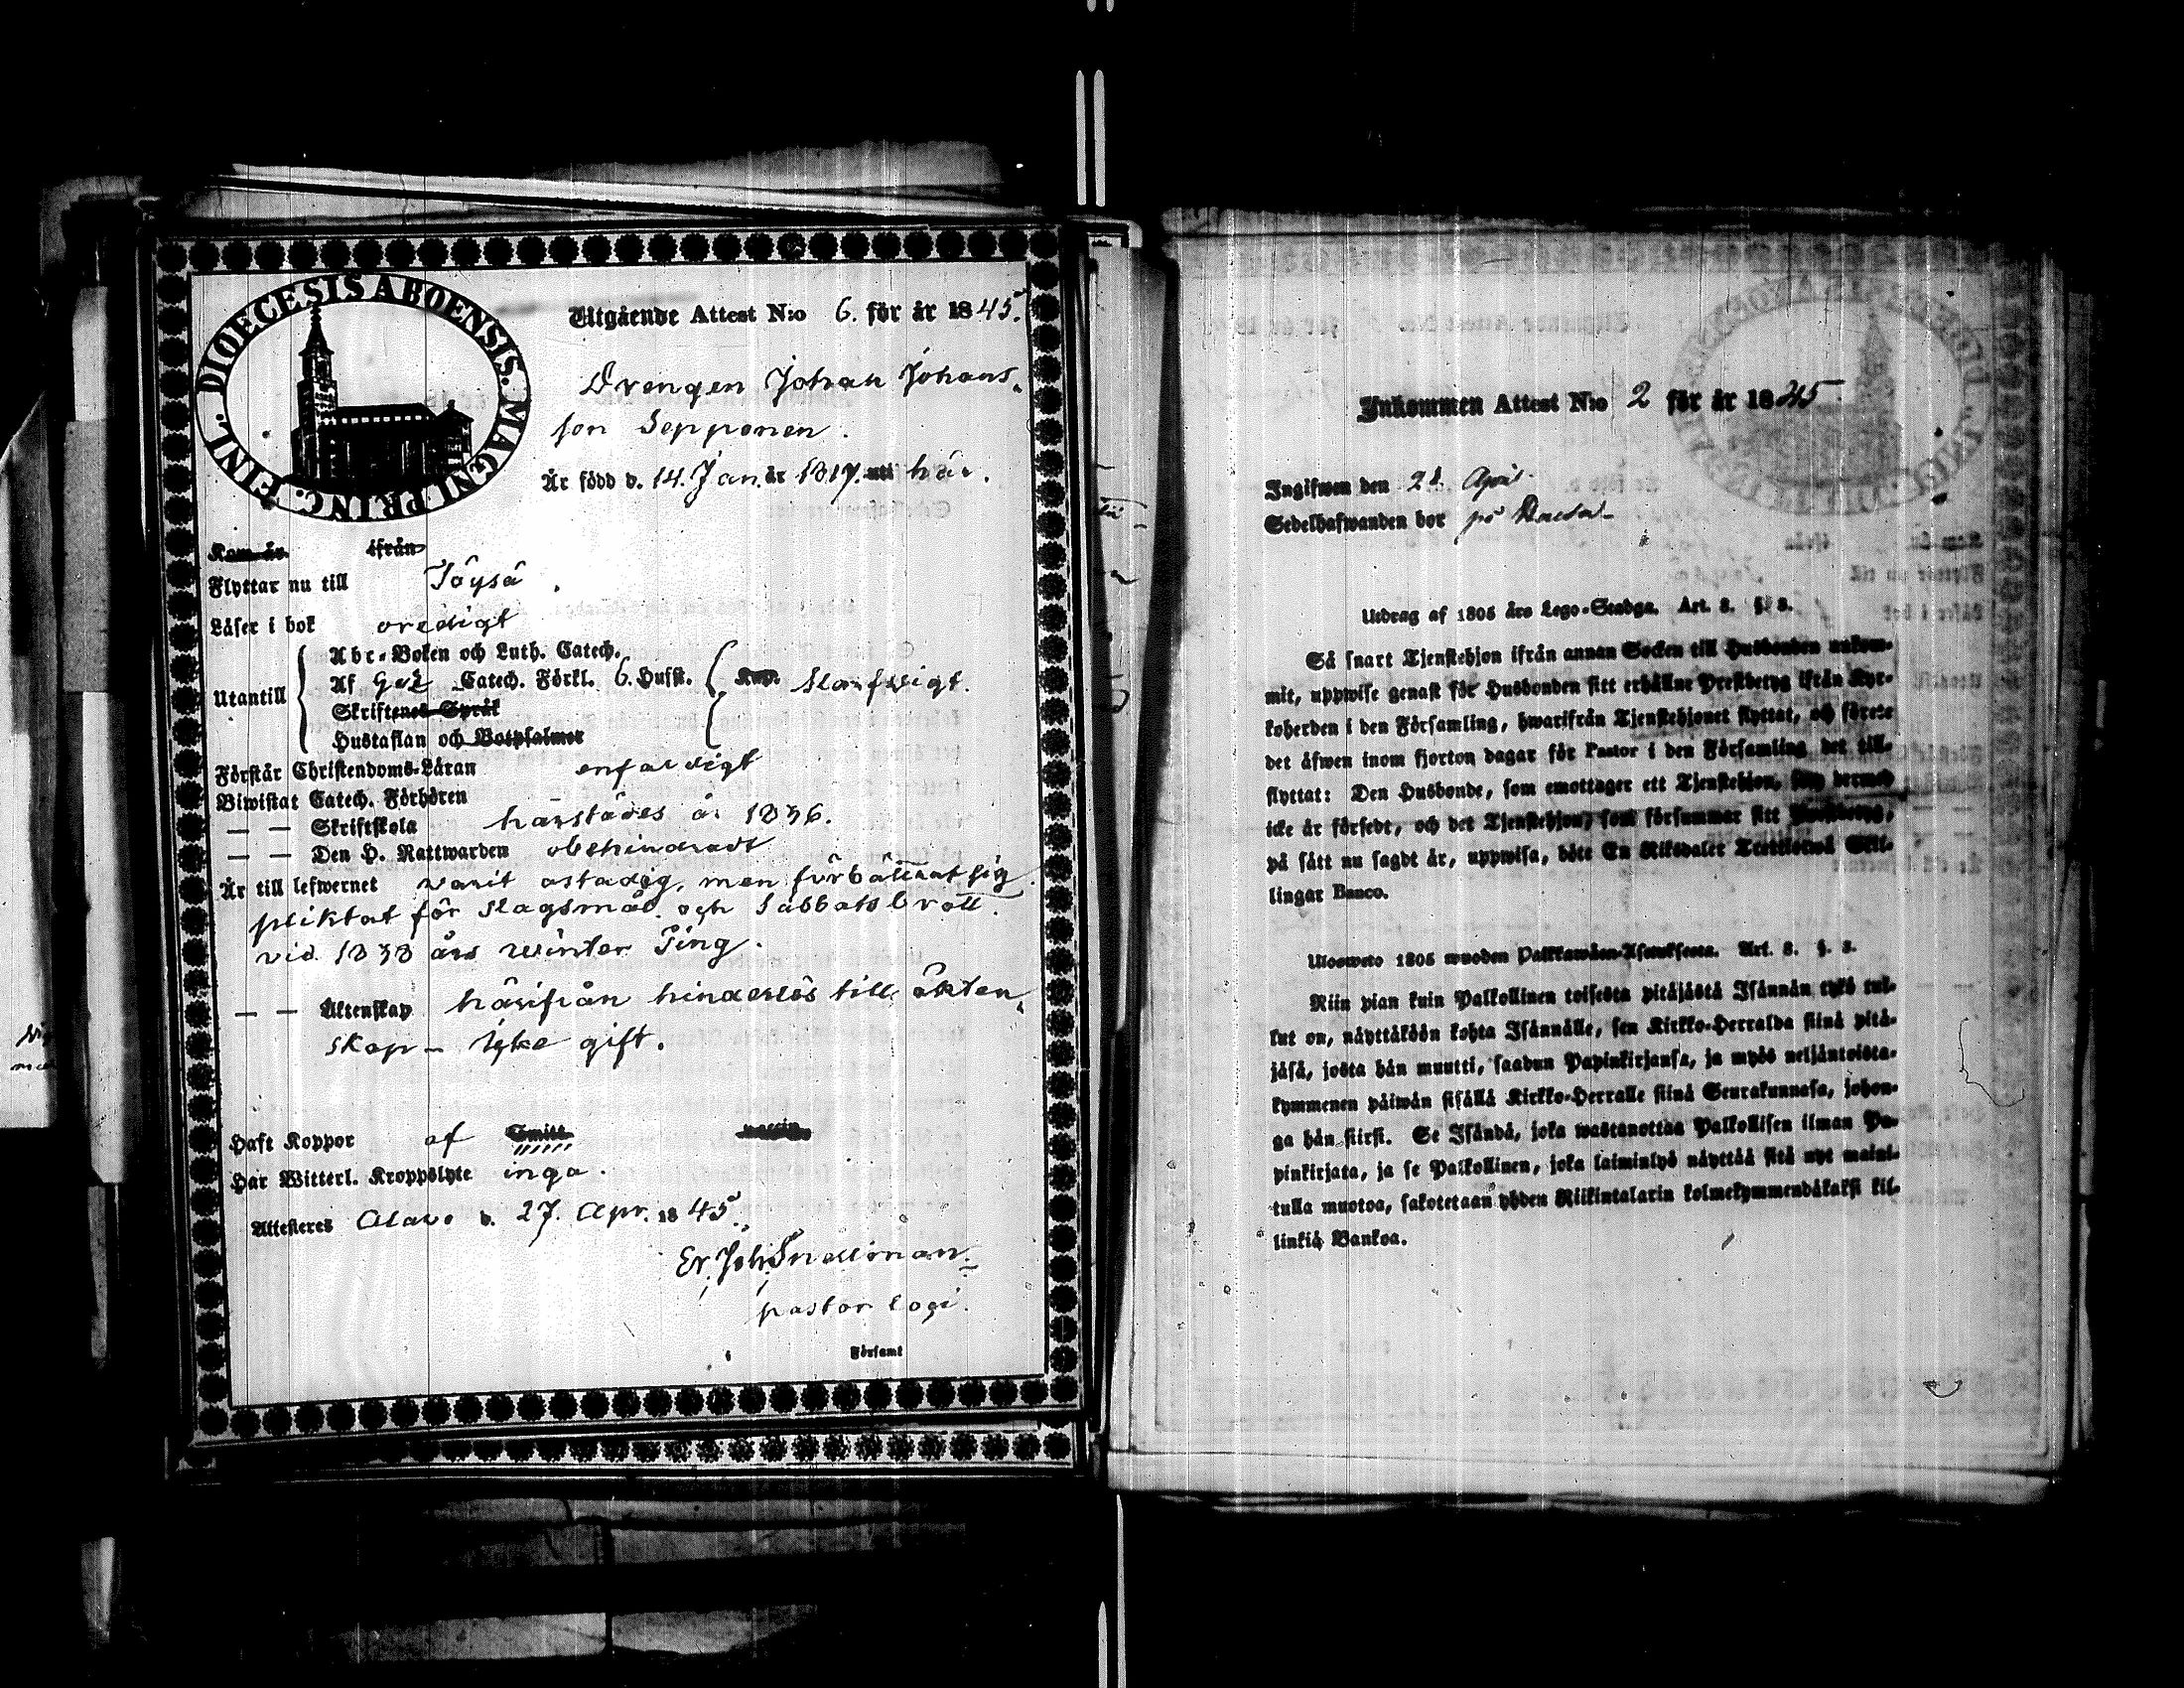 FINL. DIOECESIS ABOENSIS. MAGNI PRINC.
Utgående Attest N:o 6. för år 1845.
Drengen Johan Johans-
son Sepponen.
Är född d. 14. Jan. år 1817. uti här.
Kom år ifrån
Flyttar nu till Töysä.
Läser i bok oredigt
Utantill
Abc-Boken och Luth. Catech.
Af Catech. Förkl. 6. Husst. slarfvigt.
Skriftenes Språk
Hustaflan och Botpsalmer
Förstår Christendoms-Läran enfaldigt
Biwistat Catech. Förhören
— — Skriftskola härstädes år 1836.
— — Den H. Nattwarden obehindradt
Är till lefwernet varit ostadig, men förbättrat sig
pliktat för slagsmål och Sabbatsbrott
vid 1838 års winter Ting.
— — Äktenskap härifrån hinderlös till äkten-
skap - icke gift.
Haft Koppor af
Har Witterl. Kroppslyte inga
Attesteras Alavo d. 27. Apr. 1845.
Er. Joh. Snellman
pastor loci.
Församl
Inkommen Attest N:o 2 för år 1845.
Ingifwen den 28 April
Sedelhafwanden bor på
Utdrag af 1805 års Lego-Stadga. Art. 8. §. 3.
Så snart Tjenstehjon ifrån annan Socken till Husbonden ankom-
mit, uppwise genast för Husbonden sitt erhållne Prestbetyg ifrån Kyr-
koherden i den Församling, hwarifrån Tjenstehjonet flyttat, och förete
det äfwen inom fjorton dagar för Pastor i den Församling det till-
flyttat: Den Husbonde, som emottager ett Tjenstehjon, som dermed
icke är försedt, och det Tjenstehjon, som försummar sitt Prestbetyg,
på sätt nu sagdt är, uppwisa, böte En Riksdaler Trettiotwå Skil-
lingar Banco.
Uloswето 1805 wuoden Palkkawäen-Asetuksesta. Art. 8. §. 3.
Niin pian kuin Palkollinen toisesta pitäjästä Isännän tykö tul-
lut on, näyttäköön kohta Isännälle, sen Kirkko-Herralda siinä pitä-
jäsä, josta hän muutti, saadun Papinkirjansa, ja myös neljäntoista-
kymmenen päiwän sisällä Kirkko-Herralle siinä Seurakunnasa, johon-
ga hän siirsi. Se Isändä, joka wastanottaa Palkollisen ilman Pa-
pinkirjata, ja se Palkollinen, joka laiminlyö näyttää sitä nyt maini-
tulla muotoa, sakotetaan yhden Riikintalarin kolmekymmendäkaksi kil-
linkiä Bankoa.